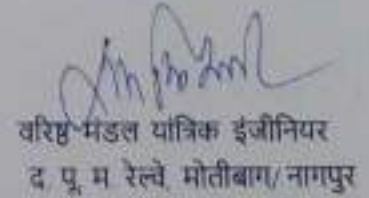 वरिष्ठ मंडल यांत्रिक इंजीनियर
द. पू. म. रेल्वे, मोतीबाग/नागपुर